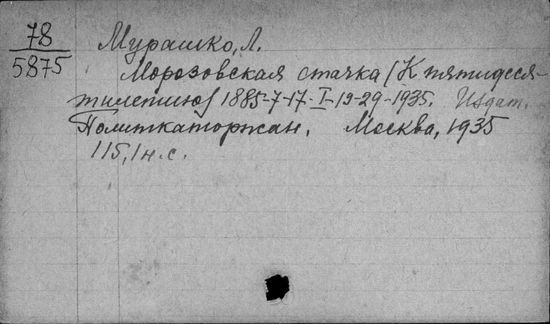 78
5875
Мурашко, Л.
Морозовская стачка (К пятидеся-
тилетию) 1885-7-17-I-19-29-1935. Издат.
Политкаторжан. Москва, 1935
115, 1 н. с.